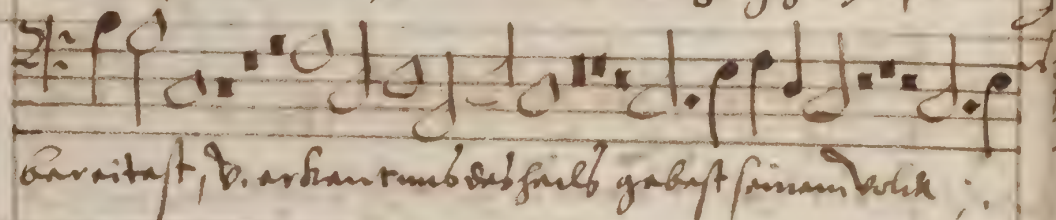 bereitest, v. erkantnus des heils gebest seinem volck